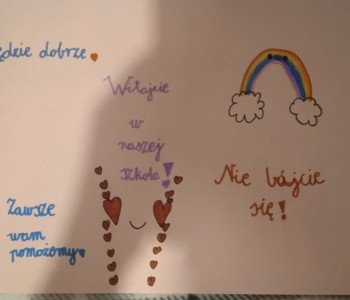 ędzie dobrze
Witajcie
w
naszej
szkole!
Nie bójcie
się!
Zawsze
wam
pomożemy